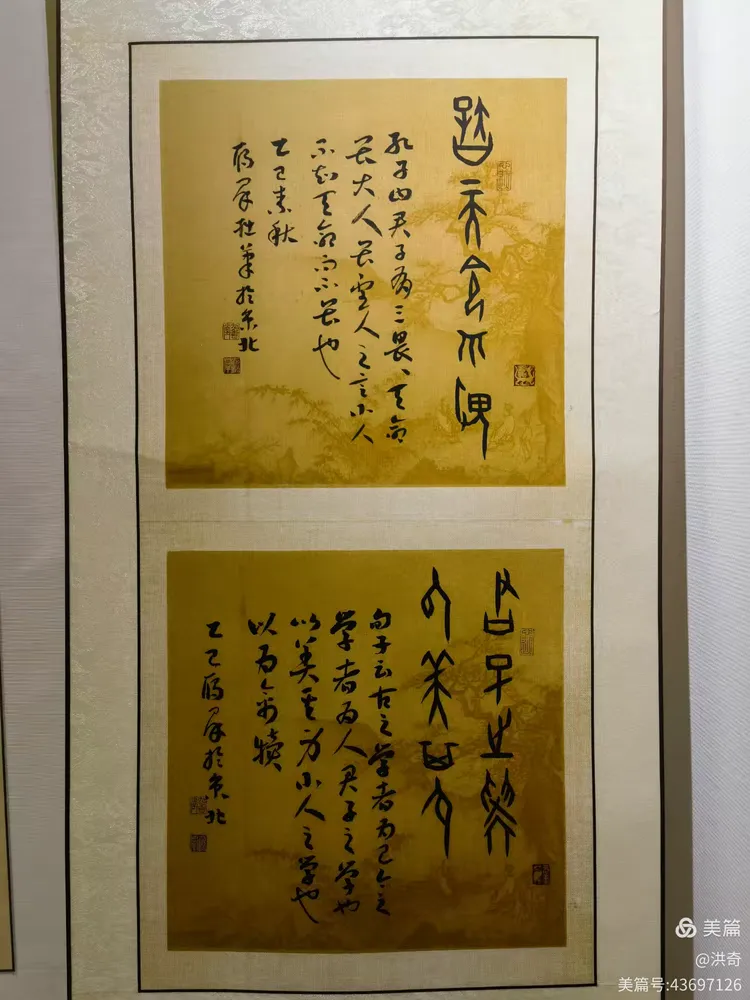 孔子曰君子有三畏、天命
畏大人畏圣人之言小人
不知天命而不畏也
乙巳素秋
拙筆於京北
君子之學
以美其身
荀子云古之学者为己今之
学者为人君子之学也
以美其身小人之学也
以为禽犊
乙巳於京北
美篇
@洪奇
美篇号:43697126